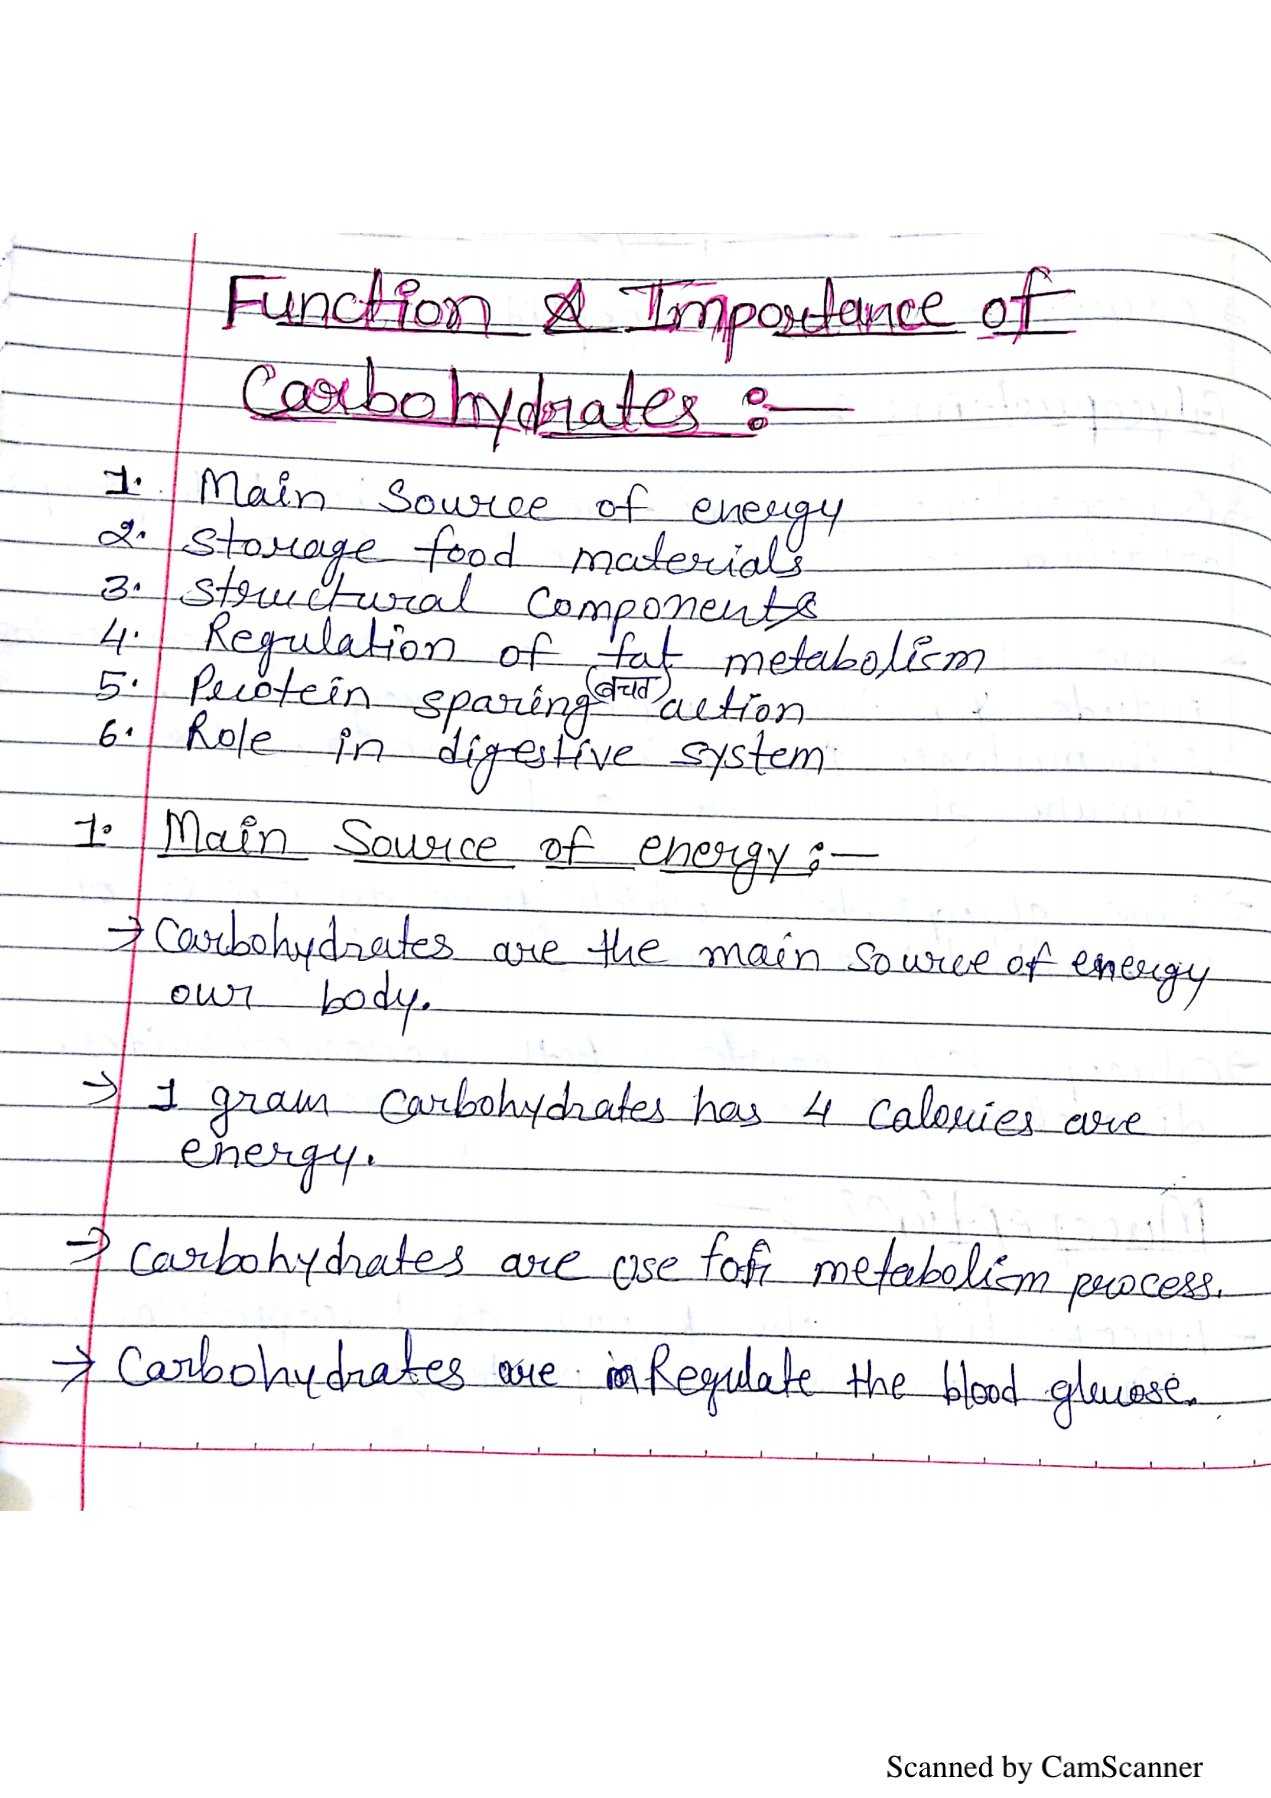 Function & Importance of
Carbohydrates :-
1. Main Source of energy
2. Storage food materials
3. Structural Components
4. Regulation of fat metabolism
5. Protein sparing (बचत) action
6. Role in digestive system
1. Main Source of energy :-
→ Carbohydrates are the main source of energy
our body.
→ 1 gram Carbohydrates has 4 Calories are
energy.
→ Carbohydrates are use for metabolism process.
→ Carbohydrates are in Regulate the blood glucose.
Scanned by CamScanner